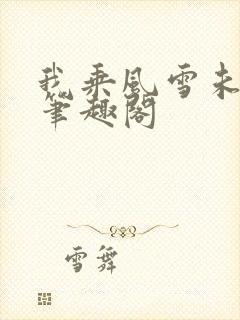 我乘风雪未
笔趣阁
雪舞